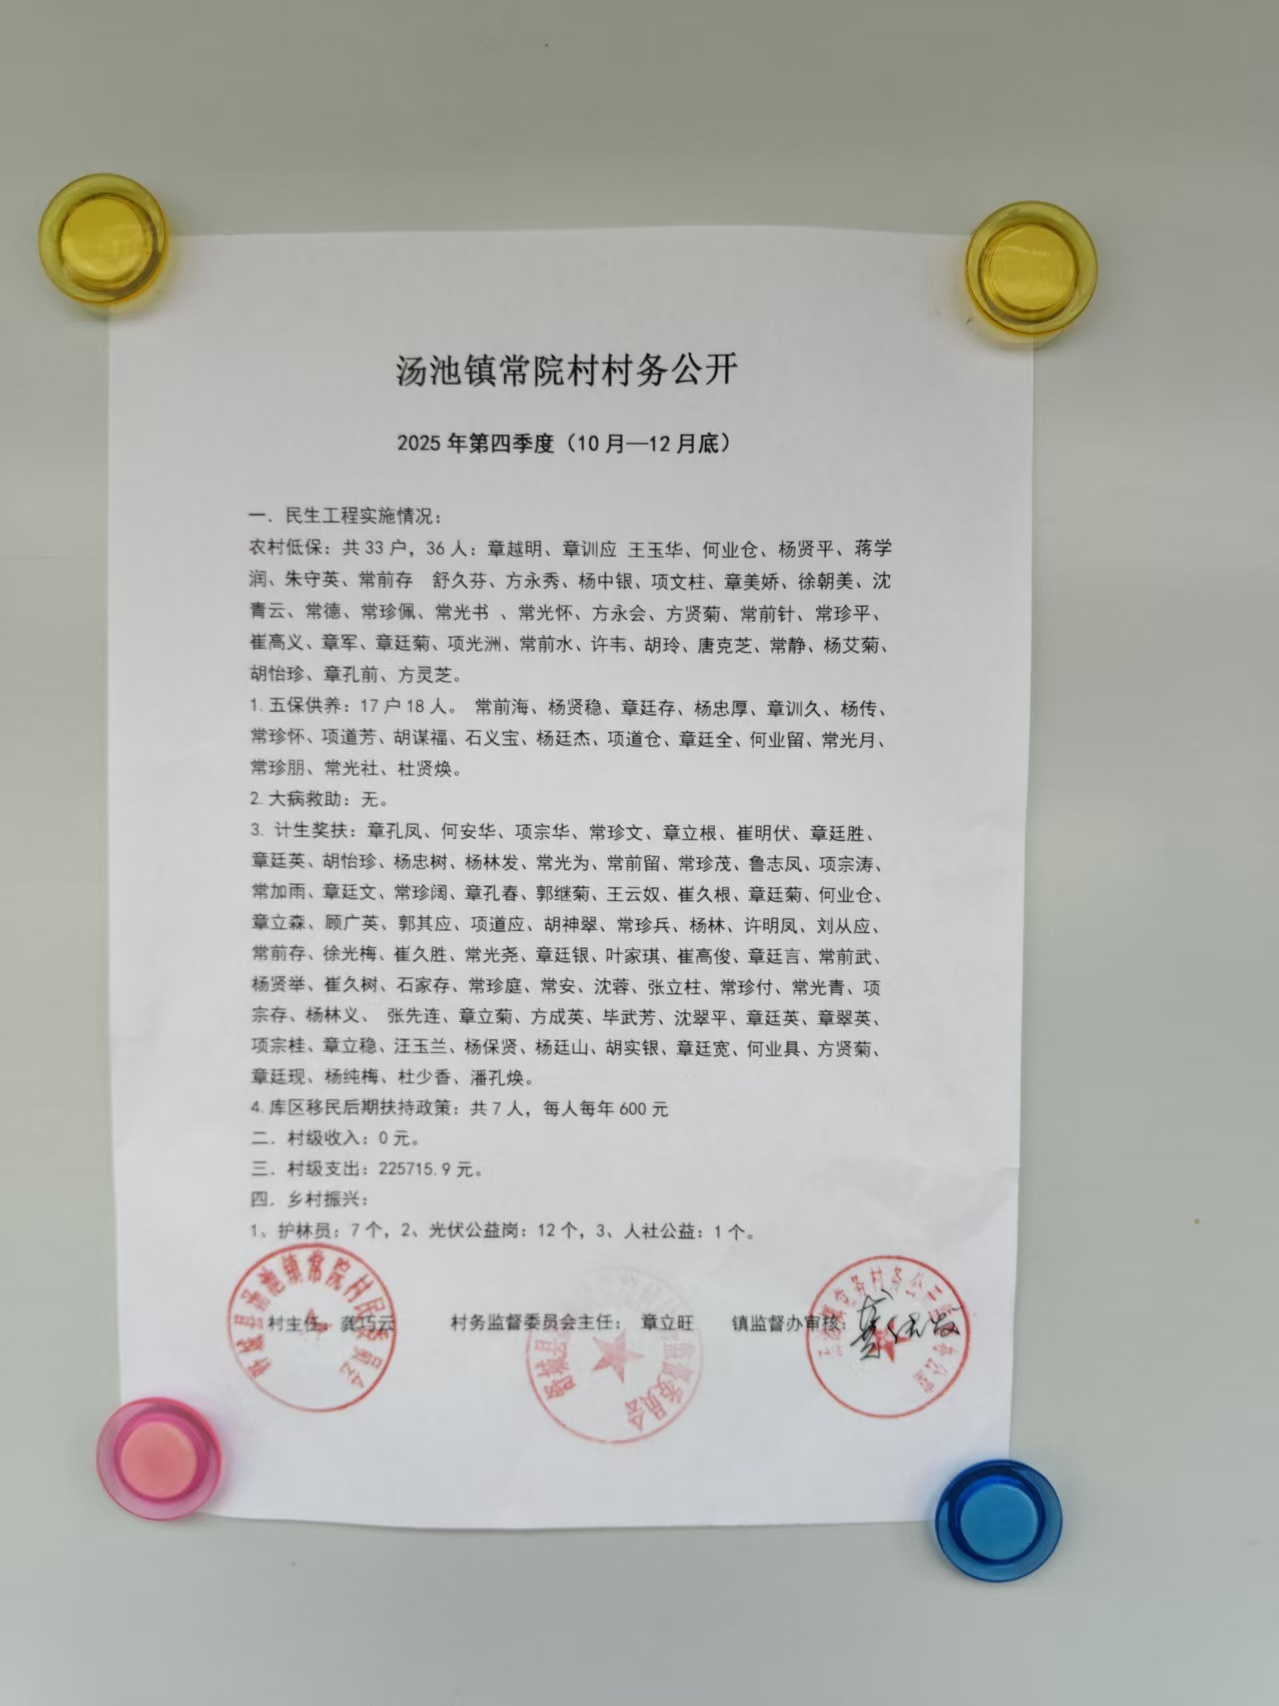 汤池镇常院村村务公开
2025年第四季度（10月—12月底）
一. 民生工程实施情况：
农村低保：共33户，36人：章越明、章训应 王玉华、何业仓、杨贤平、蒋学
润、朱守英、常前存 舒久芬、方永秀、杨中银、项文柱、章美娇、徐朝美、沈
青云、常德、常珍佩、常光书 、常光怀、方永会、方贤菊、常前针、常珍平、
崔高义、章军、章廷菊、项光洲、常前水、许韦、胡玲、唐克芝、常静、杨艾菊、
胡怡珍、章孔前、方灵芝。
1.五保供养：17户18人。 常前海、杨贤稳、章廷存、杨忠厚、章训久、杨传、
常珍怀、项道芳、胡谋福、石义宝、杨廷杰、项道仓、章廷全、何业留、常光月、
常珍朋、常光社、杜贤焕。
2.大病救助：无。
3. 计生奖扶：章孔凤、何安华、项宗华、常珍文、章立根、崔明伏、章廷胜、
章廷英、胡怡珍、杨忠树、杨林发、常光为、常前留、常珍茂、鲁志凤、项宗涛、
常加雨、章廷文、常珍阔、章孔春、郭继菊、王云奴、崔久根、章廷菊、何业仓、
章立森、顾广英、郭其应、项道应、胡神翠、常珍兵、杨林、许明凤、刘从应、
常前存、徐光梅、崔久胜、常光尧、章廷银、叶家琪、崔高俊、章廷言、常前武、
杨贤举、崔久树、石家存、常珍庭、常安、沈蓉、张立柱、常珍付、常光青、项
宗存、杨林义、 张先连、章立菊、方成英、毕武芳、沈翠平、章廷英、章翠英、
项宗桂、章立稳、汪玉兰、杨保贤、杨廷山、胡实银、章廷宽、何业具、方贤菊、
章廷现、杨纯梅、杜少香、潘孔焕。
4.库区移民后期扶持政策：共7人，每人每年600元
二. 村级收入：0元。
三. 村级支出：225715.9元。
四. 乡村振兴：
1、护林员：7个，2、光伏公益岗：12个，3、人社公益：1个。
村主任：龚巧云 村务监督委员会主任： 章立旺 镇监督办审核：
舒城县汤池镇常院村民委员会